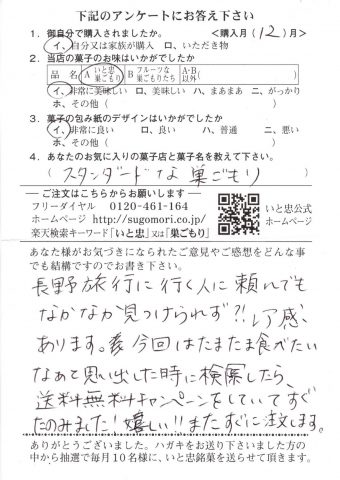 下記のアンケートにお答え下さい
1．御自分で購入されましたか。 <購入月(12)月>
イ、自分又は家族が購入 ロ、いただき物
2．当店の菓子のお味はいかがでしたか
品 名 A いと忠巣ごもり B フルーツな巣ごもりたち A・B以外( )
イ、非常に美味しい ロ、美味しい ハ、まあまあ ニ、がっかり
ホ、その他( )
3．菓子の包み紙のデザインはいかがでしたか
イ、非常に良い ロ、良い ハ、普通 ニ、悪い
ホ、その他( )
4．あなたのお気に入りの菓子店と菓子名を教えて下さい。
( スタンダードな 巣ごもり )
―ご注文はこちらからお願いします―
フリーダイヤル 0120-461-164
ホームページ http://sugomori.co.jp/
楽天検索キーワード「いと忠」又は「巣ごもり」
いと忠公式
ホームページ
あなた様がお気づきになられたご意見やご感想をどんな事
でも結構ですのでお書き下さい。
長野旅行に行く人に頼んでも
なかなか見つけられず?!レア感、
あります。今回はたまたま食べたい
なぁと思い出した時に検索したら、
送料無料キャンペーンをしていてすぐ
たのみました!嬉しい!!またすぐに注文します。
ありがとうございました。ハガキをお送り下さいました方の
中から抽選で毎月10名様に、いと忠銘菓を送らせて頂きます。